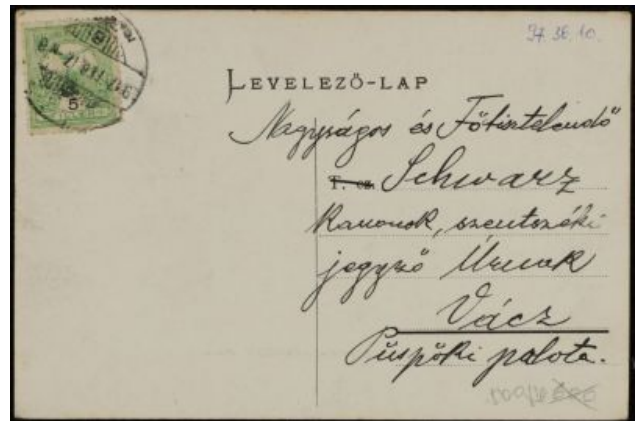 37.36.10.
LEVELEZŐ-LAP
Nagyságos és Főtisztelendő
T. cz. Schwarz
kanonok, szentszéki
jegyző Úrnak
Vácz
Püspöki palota.